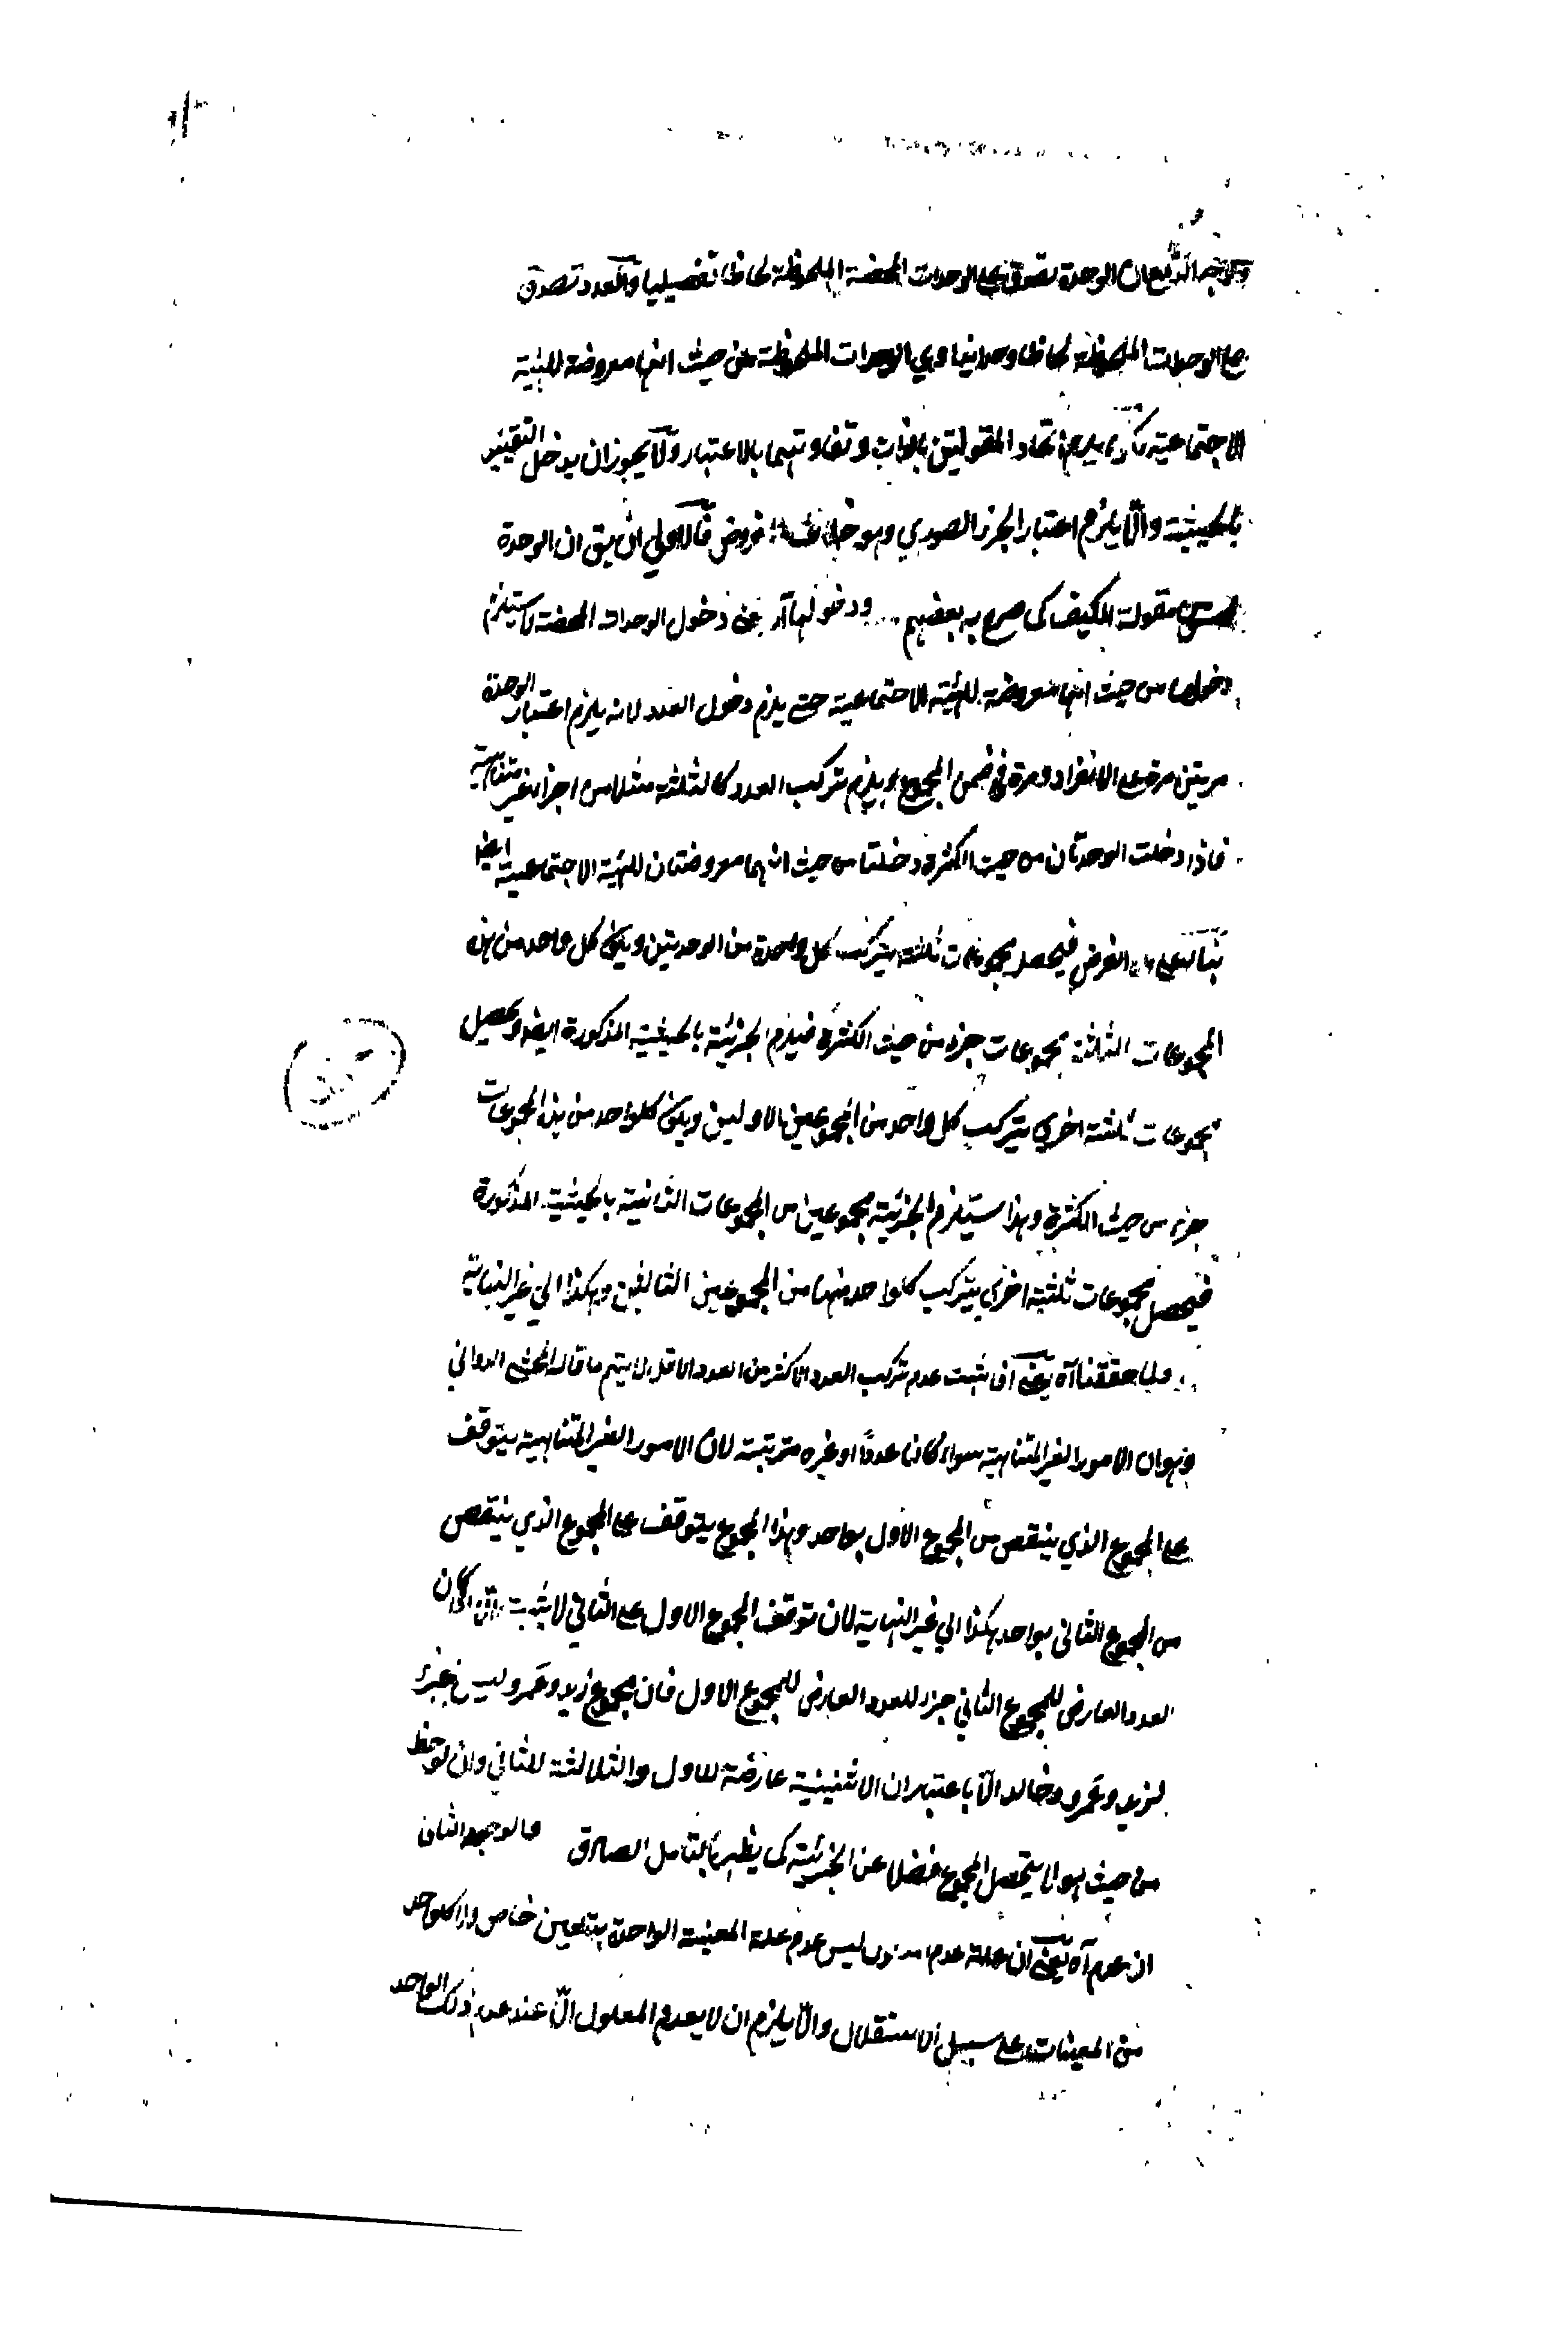 الدفع ان الوحدة تصدق على الوحدات المحضة الملحوظة لحاظا تفصيليا والعدد تصدق
على الوحدات الملحوظة لحاظا وحدانيا وهي الوحدات الملحوظة من حيث انها معروضة للهيئة
الاجتماعية اتحاد المقولتين بالذات وتفاوتهما بالاعتبار ولا يجوز ان يدخل التقييد
بالحيثية والا يلزم اعتبار الجزء الصوري وهو خلاف المفروض فالاولى ان يق ان الوحدة
مقولة الكيف كما صرح به بعضهم ودخولها آه يعنى دخول الوحدات المحضة لا يستلزم
دخولها من حيث انها معروضة للهيئة الاجتماعية حتى يلزم دخول العدد لانه يلزم اعتبار الوحدة
مرتين مرة على الانفراد ومرة في ضمن المجموع ويلزم تركب العدد كالثلثة مثلا من اجزاء غير متناهية
فاذا دخلت الوحدتان من حيث الكثرة دخلتا من حيث انهما معروضتان للهيئة الاجتماعية ايضا
بناء على الفرض فيحصل مجموعات ثلثة يتركب كل واحدة من الوحدتين ويكون كل واحد من هذه
المجموعات الثلثة مجموعات جزء من حيث الكثرة فيلزم الجزئية بالحيثية المذكورة ايضا ويحصل
مجموعات ثلثة اخرى يتركب كل واحد من المجموعين الاولين ويكون كلواحد من هذه المجموعات
جزء من حيث الكثرة وهذا يستلزم الجزئية مجموعين من المجموعات الثانية بالحيثية المذكورة
فيحصل مجموعات ثلثة اخرى يتركب كلواحد منها من المجموعين الثالثين وهكذا الى غير النهاية
ولما حققنا آه يعنى ان ثبت عدم تركب العدد الاكثر من العدد الاقل لا يتم ما قال المحشي الدواني
وهو ان الامور الغير المتناهية سواء كانا عددا او غيره مترتبة لان الامور الغير المتناهية يتوقف
على المجموع الذي ينقص من المجموع الاول بواحد وهذا المجموع يتوقف على المجموع الذي ينقص
من المجموع الثاني بواحد هكذا الى غير النهاية لان توقف المجموع الاول على الثاني لا يثبت الا ان كان
العدد العارض للمجموع الثاني جزء للعدد العارض للمجموع الاول فان مجموع زيد وعمرو ليس بجزء
لزيد وعمرو وخالد الا باعتبار ان الاثنينية عارضة للاول والثلاثة للثاني وان لوحظ
من حيث هو لا يتحصل المجموع فضلا عن الجزئية كما يظهر بالتامل الصادق فالوجه الثان
ان عدم آه يعنى ان علة عدم ليس عدم علة المعينة الواحدة بتعين خاص ولا كلواحد
من المعينات على سبيل الاستقلال والا يلزم ان لا يعدم المعلول الا عند عدم ذلك الواحد